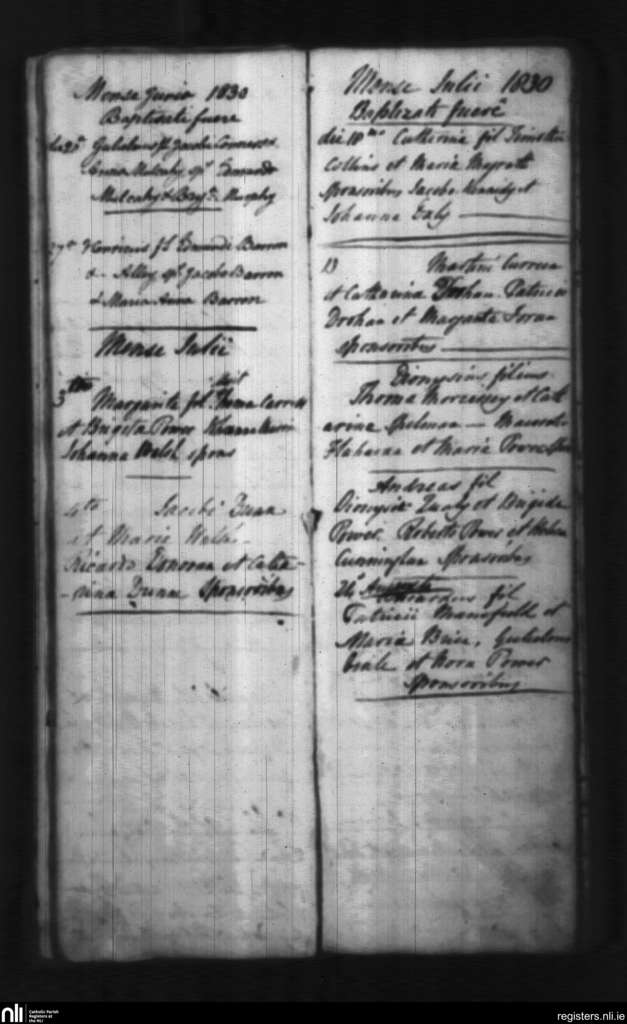 Mense Junio 1830
Baptizati fuere
die 25º Gulielmus fil Jacobi Connors &
Anna Mulcahy sps Edmundo
Mulcahy & Brigd. Murphy
27º Henricus fl Edmundi Barron
& Alley sps Jacobo Barron
& Maria Anna Barron
Mense Julii
3tia Margarita fil Thoma
et Brigita Power
Johanna Welsh spons
4to Jacobi Dunn
et Maria Welsh
Ricardo Donovan et Cathe-
-rina Dunn Sponsoribus
Mense Julii 1830
Baptizati fuerē
die 10mo Catherine fil Timothei
Collins et Maria Magrath
Sponsoribus Jacobo Kennedy et
Johanna Daly
13 Martini Curreen
et Catharina Drohan Patricio
Drohan et Margarita Foran
sponsoribus
Dionysius filius
Thoma Morrissey et Cath
erine Spelman
Flahavan et Maria Power
Andreas fil
Dionysii Qualy et Brigida
Power. Roberto Power et Helena
Cunningham Sponsoribus
24º fil
Patricii Mansfield et
Maria Brien, Gulielmo
Veale et Nora Power
Sponsoribus
nli
Catholic Parish
Registers at
the NLI
registers.nli.ie